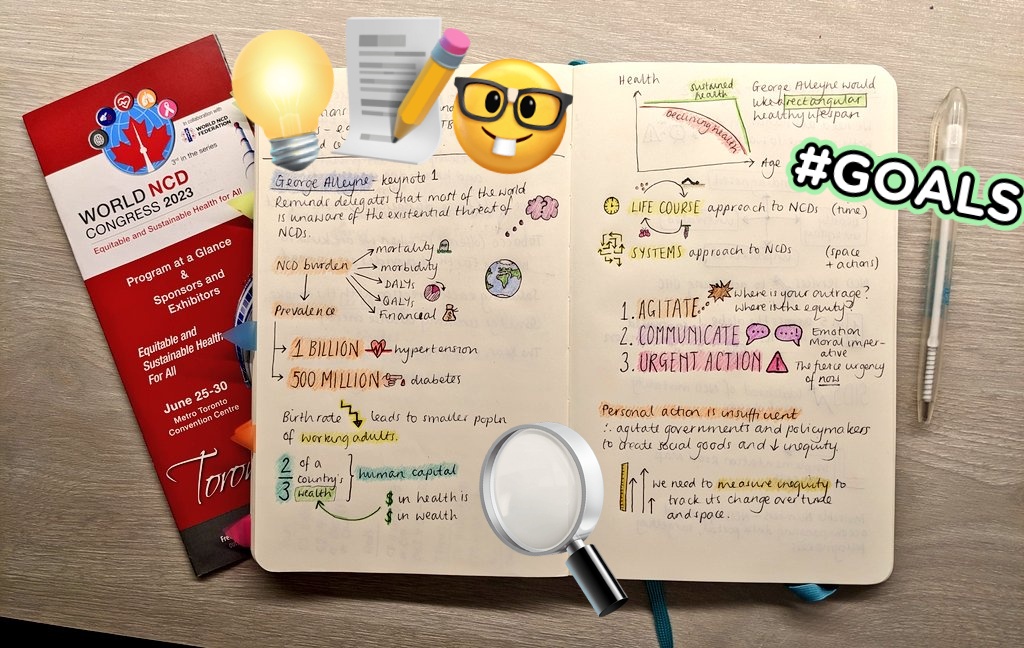 in collaboration with
WORLD NCD
FEDERATION
3rd in the series
WORLD NCD
CONGRESS 2023
Equitable and Sustainable Health for All
Program at a Glance
&
Sponsors and
Exhibitors
Equitable and
Sustainable Health
For All
June 25-30
Metro Toronto
Convention Centre
George Alleyne - keynote 1
Reminds delegates that most of the world
is unaware of the existential threat of
NCDs.
NCD burden
mortality
morbidity
DALYs
QALYs
Financial
Prevalence
1 BILLION hypertension
500 MILLION diabetes
Birth rate leads to smaller popln
of working adults.
2/3 of a
country's
wealth
human capital
$ in health is
$ in wealth
Health
sustained
health
Declining health
Age
George Alleyne would
like a rectangular
healthy lifespan
#GOALS
LIFE COURSE approach to NCDs (time)
SYSTEMS approach to NCDs (space
+ actions)
1. AGITATE Where is your outrage?
Where is the equity?
2. COMMUNICATE Emotion
Moral imper-
ative
3. URGENT ACTION The fierce urgency
of now
Personal action is insufficient
∴ agitate governments and policymakers
to create social goods and ↓ inequity
we need to measure inequity to
track its change over time
and space.